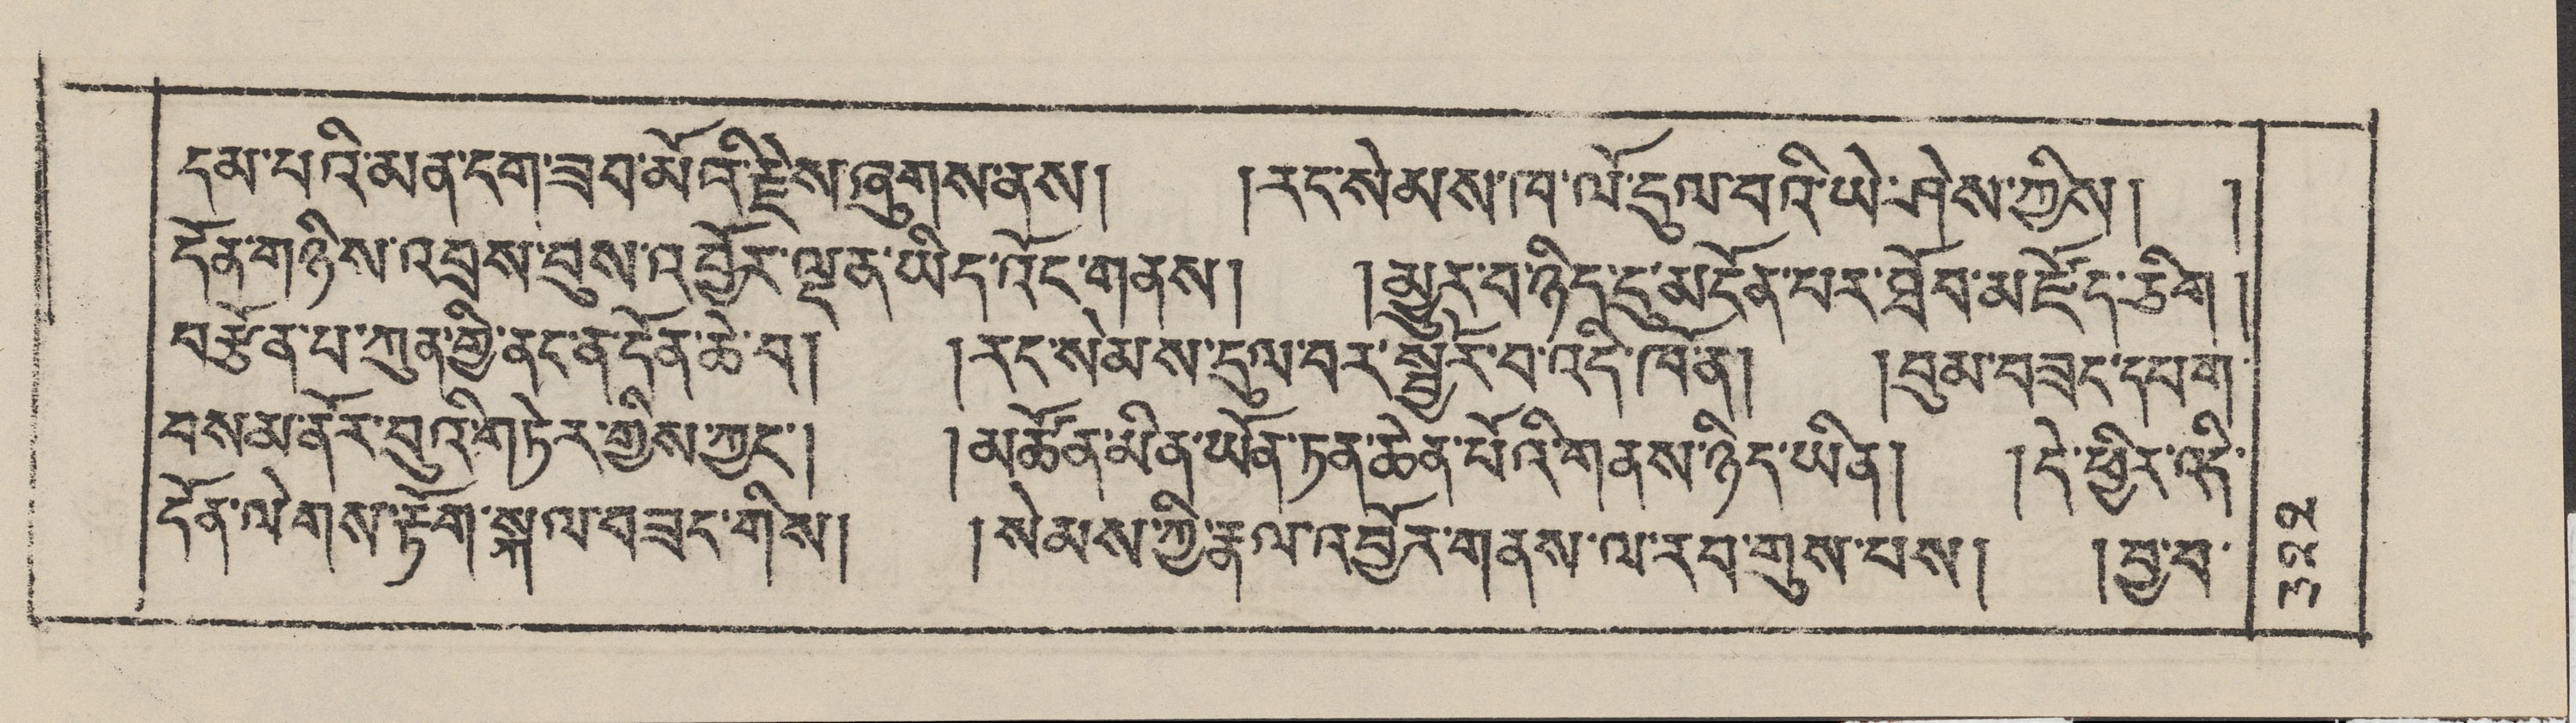 དམ་པའི་མན་དག་ཟབ་མོའི་རྗེས་ཞུགས་ནས། །རང་སེམས་ཁ་ལོ་དུལ་བའི་ཡེ་ཤེས་ཀྱིས། །
དོན་གཉིས་འབྲས་བུས་འབྱོར་ལྡན་ཡིད་འོང་གནས། །མྱུར་བ་ཉིད་དུ་མངོན་པར་ཐོབ་མཛོད་ཅིག །
བརྩོན་པ་ཀུན་གྱི་ནང་ན་དོན་ཆེ་བ། །རང་སེམས་དུལ་བར་སྦྱོར་བ་འདི་ཁོ་ན། །བུམ་བཟང་དཔག་
བསམ་ནོར་བུའི་གཏེར་གྱིས་ཀྱང་། །མཚོན་མིན་ཡོན་ཏན་ཆེན་པོའི་གནས་ཉིད་ཡིན། །དེ་ཕྱིར་འདི་
དོན་ལེགས་རྟོག་སྐལ་བཟང་གིས། །སེམས་ཀྱི་རྣལ་འབྱོར་གནས་ལ་རབ་གུས་པས། །བྱ་བ་